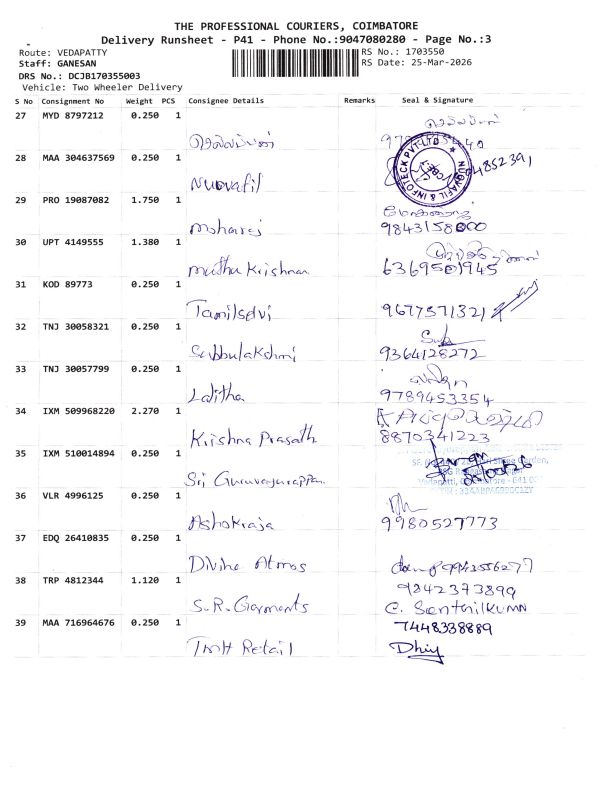 THE PROFESSIONAL COURIERS, COIMBATORE
Delivery Runsheet - P41 - Phone No.:9047080280 - Page No.:3
Route: VEDAPATTY
RS No.: 1703550
Staff: GANESAN
RS Date: 25-Mar-2026
DRS No.: DCJB170355003
Vehicle: Two Wheeler Delivery
S No Consignment No Weight PCS Consignee Details Remarks Seal & Signature
27 MYD 8797212 0.250 1
28 MAA 304637569 0.250 1
Nuovafil
29 PRO 19087082 1.750 1
Mohanraj 9843158000
30 UPT 4149555 1.380 1
Muthu Krishnan 6369501945
31 KOD 89773 0.250 1
Tamilselvi 9677571321
32 TNJ 30058321 0.250 1
Subbulakshmi 9364128272
33 TNJ 30057799 0.250 1
Lalitha 9789453354
34 IXM 509968220 2.270 1
Krishna Prasath 8870341223
35 IXM 510014894 0.250 1
Sri Guruvayurappan
36 VLR 4996125 0.250 1
Ashokraja 9980527773
37 EDQ 26410835 0.250 1
Divine Atmos 9943556277
38 TRP 4812344 1.120 1
9842373899
S.R. Garments C. Senthilkumar
39 MAA 716964676 0.250 1
7448338889
TMH Retail Dhiy